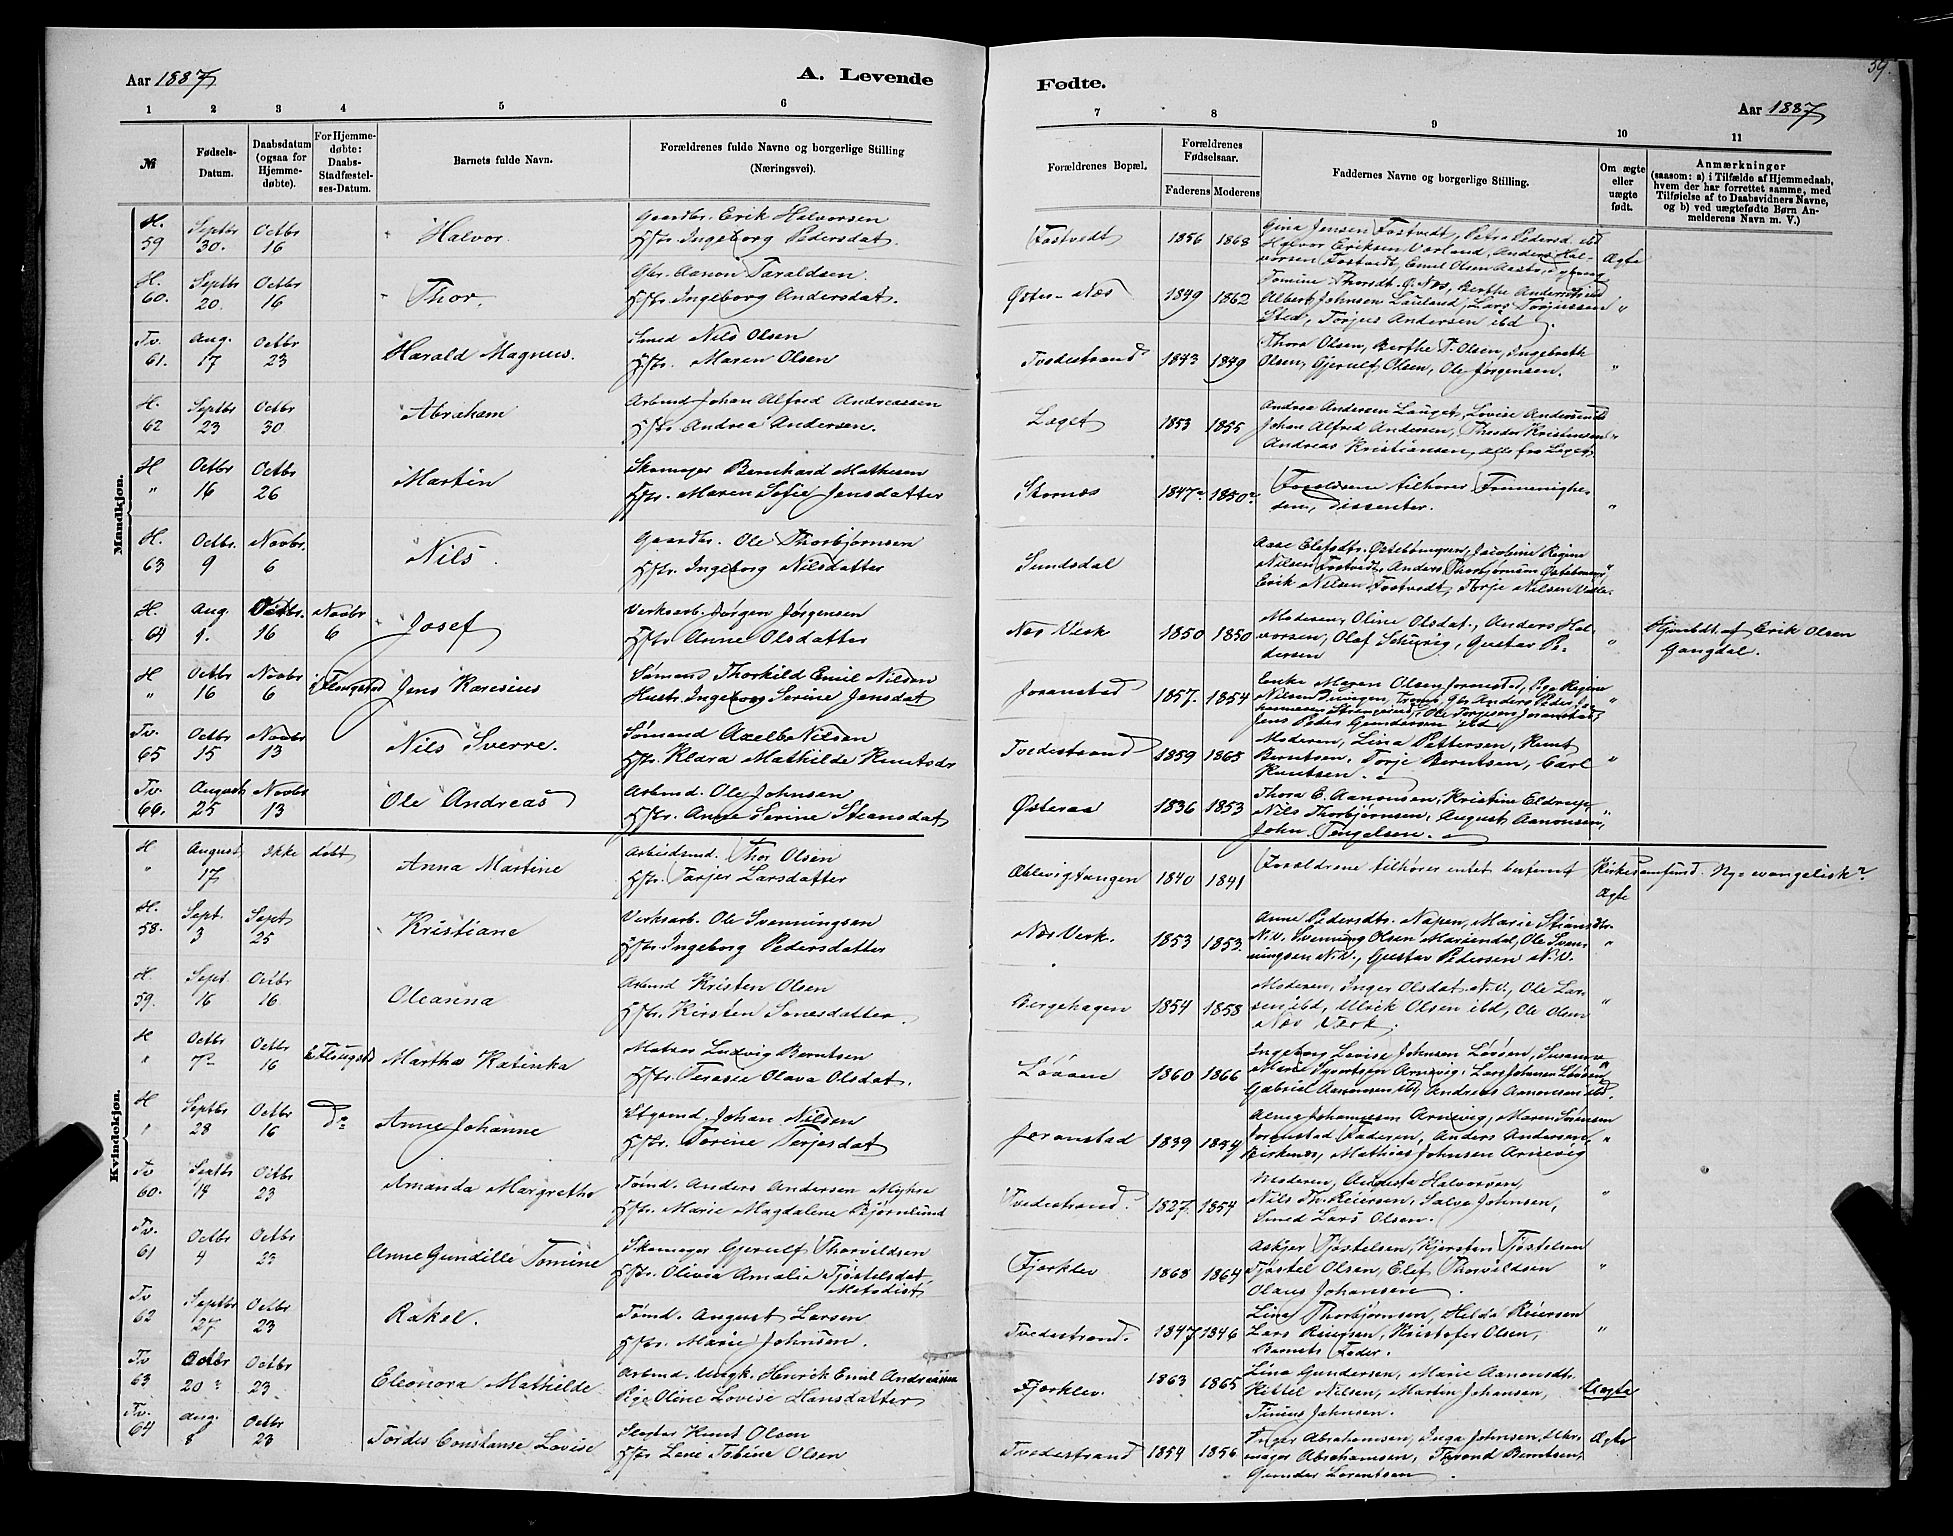 59.
Aar 1887
A. Levende
Fødte.
Aar 1887
1 2 3 4 5 6 7 8 9 10 11
№
Fødsels-
Datum.
Daabsdatum
(ogsaa for
Hjemme-
døbte).
For Hjemme-
døbte:
Daabs-
Stadfæstel-
ses-Datum.
Barnets fulde Navn.
Forældrenes fulde Navne og borgerlige Stilling
(Næringsvei).
Forældrenes Bopæl.
Forældrenes
Fødselsaar.
Faderens
Moderens
Faddernes Navne og borgerlige Stilling.
Om ægte
eller
uægte
født.
Anmærkninger
(saasom: a) i Tilfælde af Hjemmedaab,
hvem der har forrettet samme, med
Tilføielse af to Daabsvidners Navne,
og b) ved uægtefødte Børn An-
melderens Navn m. V.)
Mandkjøn.
H. 59 Septbr 30. Octbr 16 Halvor.
Gaardbr. Erik Halvorsen
Hstr. Ingeborg Pedersdat.
Fostvedt 1856 1863
Gina Jensen Fostvedt, Petra Pedersd. ibd
Halvor Eriksen Varland, Anders Hal-
vorsen Fostvedt, Emil Olsen
Ægte
H. 60. Septbr 20 Octbr 16 Thor.
Gbr. Aanon Taraldsen.
Hstr. Ingeborg Andersdat.
Øster-Næs 1849 1862
Tomine Thorsdt. Ø. Næs, Berthe Andersd ibd
Albert Johnsen Lauland, Lars Torjussen
Sted, Torjus Andersen ibd
"
Tv. 61. Aug. 17 Octbr 23 Harald Magnus.
Smed Nils Olsen
Hstr. Maren Olsen
Tvedestrand 1843 1849
Thora Olsen, Berthe T. Olsen, Ingebreth
Olsen, Gjerulf Olsen, Ole Jørgensen.
"
H. 62 Septbr 23 Octbr 30 Abraham
Arbmd Johan Alfred Andreassen
Hstr Andrea Andersen.
Laget 1853 1855
Andrea Andersen Lauget, Lovise Andersen ibd
Johan Alfred Andersen, Theodor Kristensen
Andreas Kristiansen, alle fra Laget
"
H " Octbr 16 Octbr 26 Martin
Skomager Bernhard Mathisen
Hstr. Maren Sofie Jensdatter
Skornæs 1847? 1850?
Forældrene tilhører Frimenighe-
den, dissenter.
"
H. 63 Octbr. 9 Novbr. 6 Nils.
Gaardbr. Ole Thorbjørnsen
Hstr. Ingeborg Nilsdatter
Sundsdal
Aase Elefsdtr. Østebømyren, Jacobine Regine
Nilsen Fostvedt, Anders Thorbjørnsen
Erik Nilsen Fostvedt, Torje Nilsen
"
H. 64 Aug. 1. Octbr. 16 Novbr 6 Josef
Verksarb. Jørgen Jørgensen
Hstr. Anne Olsdatter
Næs Verk 1850 1850
Moderen, Oline Olsdat., Anders Hal-
vorsen, Olaf Schurig, Gustav Pe-
dersen
"
Hjemdbt. af Erik Olsen
Gangdal.
H " Octbr 16 Novbr 6 i Flougstad Jens Karesius
Sømand Thorkild Emil Nilsen
Hustr. Ingeborg Serine Jensdat
Joranstad 1857. 1854
Enke Maren Olsen Joranstad, Pge Regine
Nilsen
Jens Peder Gundersen ibd
"
Tv. 65 Octbr 15 Novbr 13 Nils Sverre.
Sømand Axelbo Nilsen
Hstr. Klara Mathilde Knutsdr
Tvedestrand 1859 1865
Moderen, Lina Pettersen, Knut
Berntsen, Torje Berntsen, Carl
Knutsen.
"
Tv. 66. August 25 Novbr 13 Ole Andreas
Arbmd. Ole Johnsen
Hstr. Anne Serine Steansdat
Østeraa 1836 1853
Thora E. Aanonsen, Kristine Eldrup,
Nils Thorbjørnsen, August Aanonsen,
John Tengelsen.
"
Kvindekjøn.
H " August 17 Ikke døbt Anna Martine
Arbeidsmd. Thor Olsen
Hstr. Torjer Larsdatter
Oblevigtangen 1840 1841
Forældrene tilhører intet bestemt Kirkesamfund. Ny-evangelisk?
Ægte
H. 58. Sept. 3 Sept 25 Kristiane
Verksarb. Ole Svenningsen
Hstr. Ingeborg Pedersdatter
Næs Verk. 1853 1853.
Anne Pedersdtr. Napen, Marie Stiansdtr.
N.V. Svenning Olsen Mariendal, Ole Sven-
ningsen N.V., Gustav Pedersen N.V.
"
H. 59. Sept. 16 Octbr 16 Oleanna
Arbmd Kristen Olsen
Hstr. Kirsten Sønesdatter.
Bergehagen 1854 1858
Moderen, Inger Olsdat. N.V., Ole Lar-
sen ibd, Ulrik Olsen ibd, Ole Olsen
Næs Værk.
"
H " Octbr 7 Octbr 16 i Flougstad Martha Katinka
Matros Ludvig Berntsen
Hstr. Terese Olava Olsdat.
Løvøen 1860 1866
Ingeborg Lovise Johnsen Løvøen, Susanne
Marie Syvertsen Arnevig, Lars Johnsen Løvøen
Gabriel Aanonsen ibd, Andreas Aanonsen ibd.
"
H " Septbr 28 Octbr 16 do Anne Johanne
Stgsmd. Johan Nilsen
Hstr. Torine Terjesdat
Joranstad 1839 1854
Johannesen Arnevig, Maren Sørensen
Joranstad Faderen, Anders Andersen,
Birkenes, Mathias Johnsen Arnevig
"
Tv 60. Septbr 14 Octbr 23 Amanda Margrethe
Tømd. Anders Andersen Myhre
Hstr. Marie Magdalene Bjørnlund
Tvedestrand. 1827. 1854
Moderen, Augusta Halvorsen,
Nils Th. Reiersen, Salve Johnsen,
Smed Lars Olsen.
"
Tv. 61 Octbr 4 Octbr 23 Anne Gundille Tomine
Skomager Gjerulf Thorvildsen
Hstr. Olivea Amalie Tjøstelsdat.
Metodist
Fjerklev 1863 1864
Askjer Tjøstelsen, Kjersten Tjøstelsen
Tjøstel Olsen, Elef Thorvildsen
Olaus Johansen.
"
Tv 62 Septbr 27 Octbr 23 Rakel.
Tømd. August Larsen
Hstr. Marie Johnsen.
Tvedestrand. 1847 1846
Line Thorbjørnsen, Helda Reiersen
Lars Ringsen, Kristofer Olsen,
Barnets Fader.
"
Tv 63 Octbr 20? Octbr 23. Eleonora Mathilde
Arbmd. Ungk. Henrik Emil Andreassen
Pige Oline Lovise Hansdatter
Fjerklev. 1863 1865
Lina Gundersen, Marie Aanonsdt.
Kittel Nilsen, Martin Johansen,
Tinius Johnsen.
Uægte
Tv. 64 Aug. 8 Octbr 23 Tordes Constanse Lovise
Slagter Knut Olsen
Hstr Lene Tobine Olsen
Tvedestrand 1854 1856
Inger Abrahamsen, Inga Johnsen, Uhr-
mager Abrahamsen, Berntsen,
Gunder Lorentsen.
Ægte